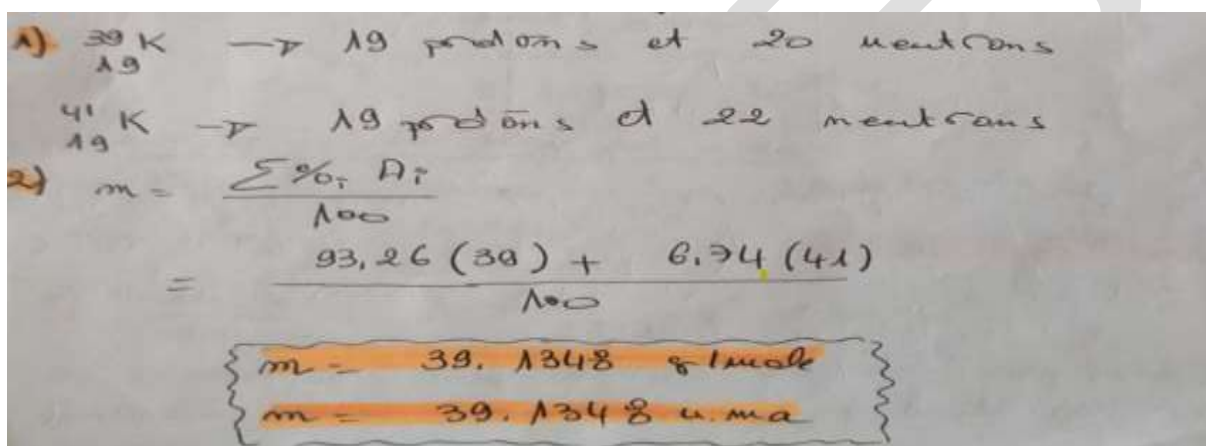 1) ³⁹₁₉K → 19 protons et 20 neutrons
⁴¹₁₉K → 19 protons et 22 neutrons
2) m = Σ%i Ai / 100
= 93,26 (39) + 6.74 (41) / 100
m = 39.1348 g/mole
m = 39.1348 u.ma